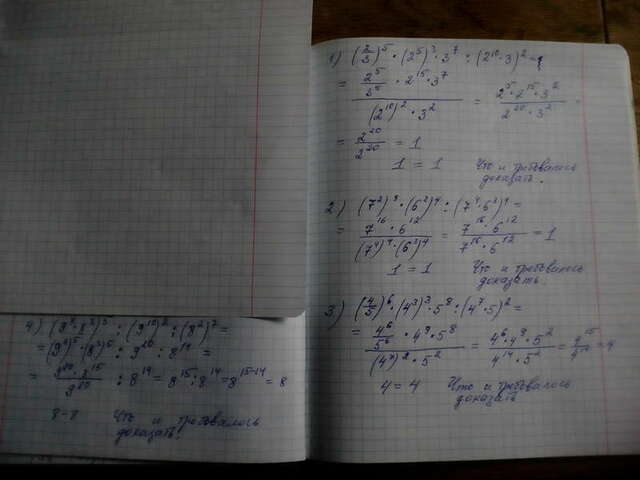 1) (2/3)⁵ · (2⁵)³ · 3⁷ : (2¹⁰ · 3)² = 1
= (2⁵/3⁵ · 2¹⁵ · 3⁷)/((2¹⁰)² · 3²) = (2⁵ · 2¹⁵ · 3²)/(2²⁰ · 3²) =
= 2²⁰/2²⁰ = 1
1 = 1 Что и требовалось
доказать.
= 7¹⁶ · 6¹²/((7⁴)⁴ · (6³)⁴) = 7¹⁶ · 6¹²/(7¹⁶ · 6¹²) = 1
1 = 1 Что и требовалось
доказать.
3) (4/5)⁶ · (4³)³ · 5⁸ : (4⁷ · 5)² =
= (4⁶/5⁶ · 4⁹ · 5⁸)/((4⁷)² · 5²) = (4⁶ · 4⁹ · 5²)/(4¹⁴ · 5²) = 4¹⁵/4¹⁴ = 4
4 = 4 Что и требовалось
доказать
= (9⁴)⁵ · (8³)⁵ : 9²⁰ : 8¹⁴ =
: 8¹⁴ = 8¹⁵ : 8¹⁴ = 8¹⁵⁻¹⁴ = 8
8 - 8 Что и требовалось
доказать.